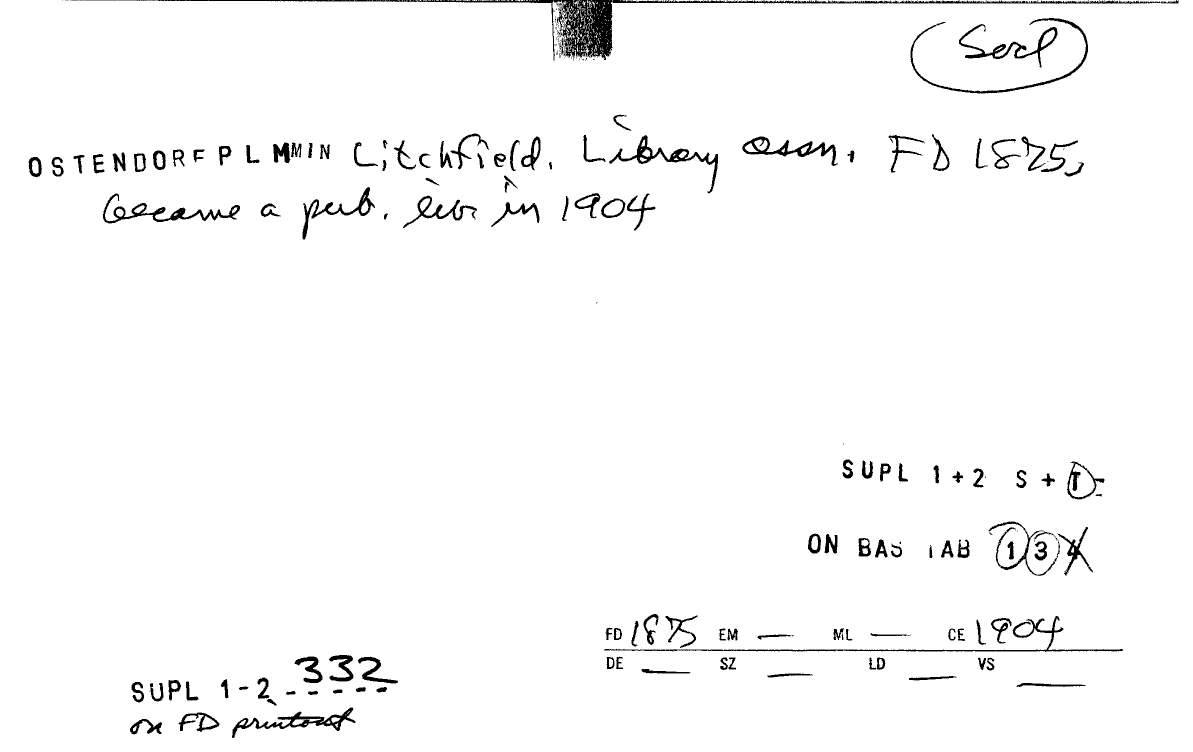 Socl
OSTENDORF P L MMIN Litchfield. Library assn. FD 1875,
became a pub. libr in 1904
SUPL 1+2 S + T
ON BAS TAB 1 3 4
FD 1875 EM — ML — CE 1904
DE — SZ — LD — VS —
SUPL 1-2 332
on FD printout